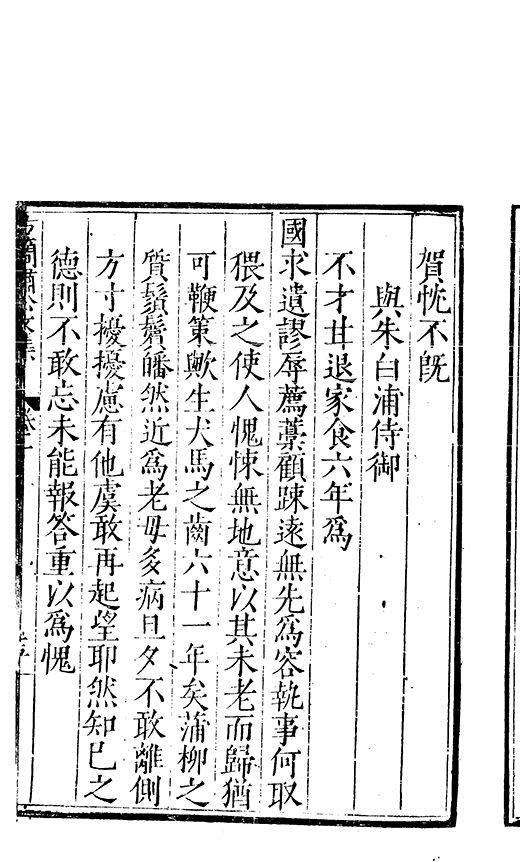 冒忱不既
與朱白浦侍御
不才甘退家食六年爲
國求遺謬辱薦藁顧踈遠無先爲容執事何取
猥及之使人愧悚無地意以其未老而歸猶
可鞭策歟生犬馬之齒六十一年矣蒲柳之
質鬚鬢皤然近爲老母多病旦夕不敢離側
方寸擾擾慮有他虞敢再起望耶然知己之
德則不敢忘未能報答重以爲愧
簡肅公文集